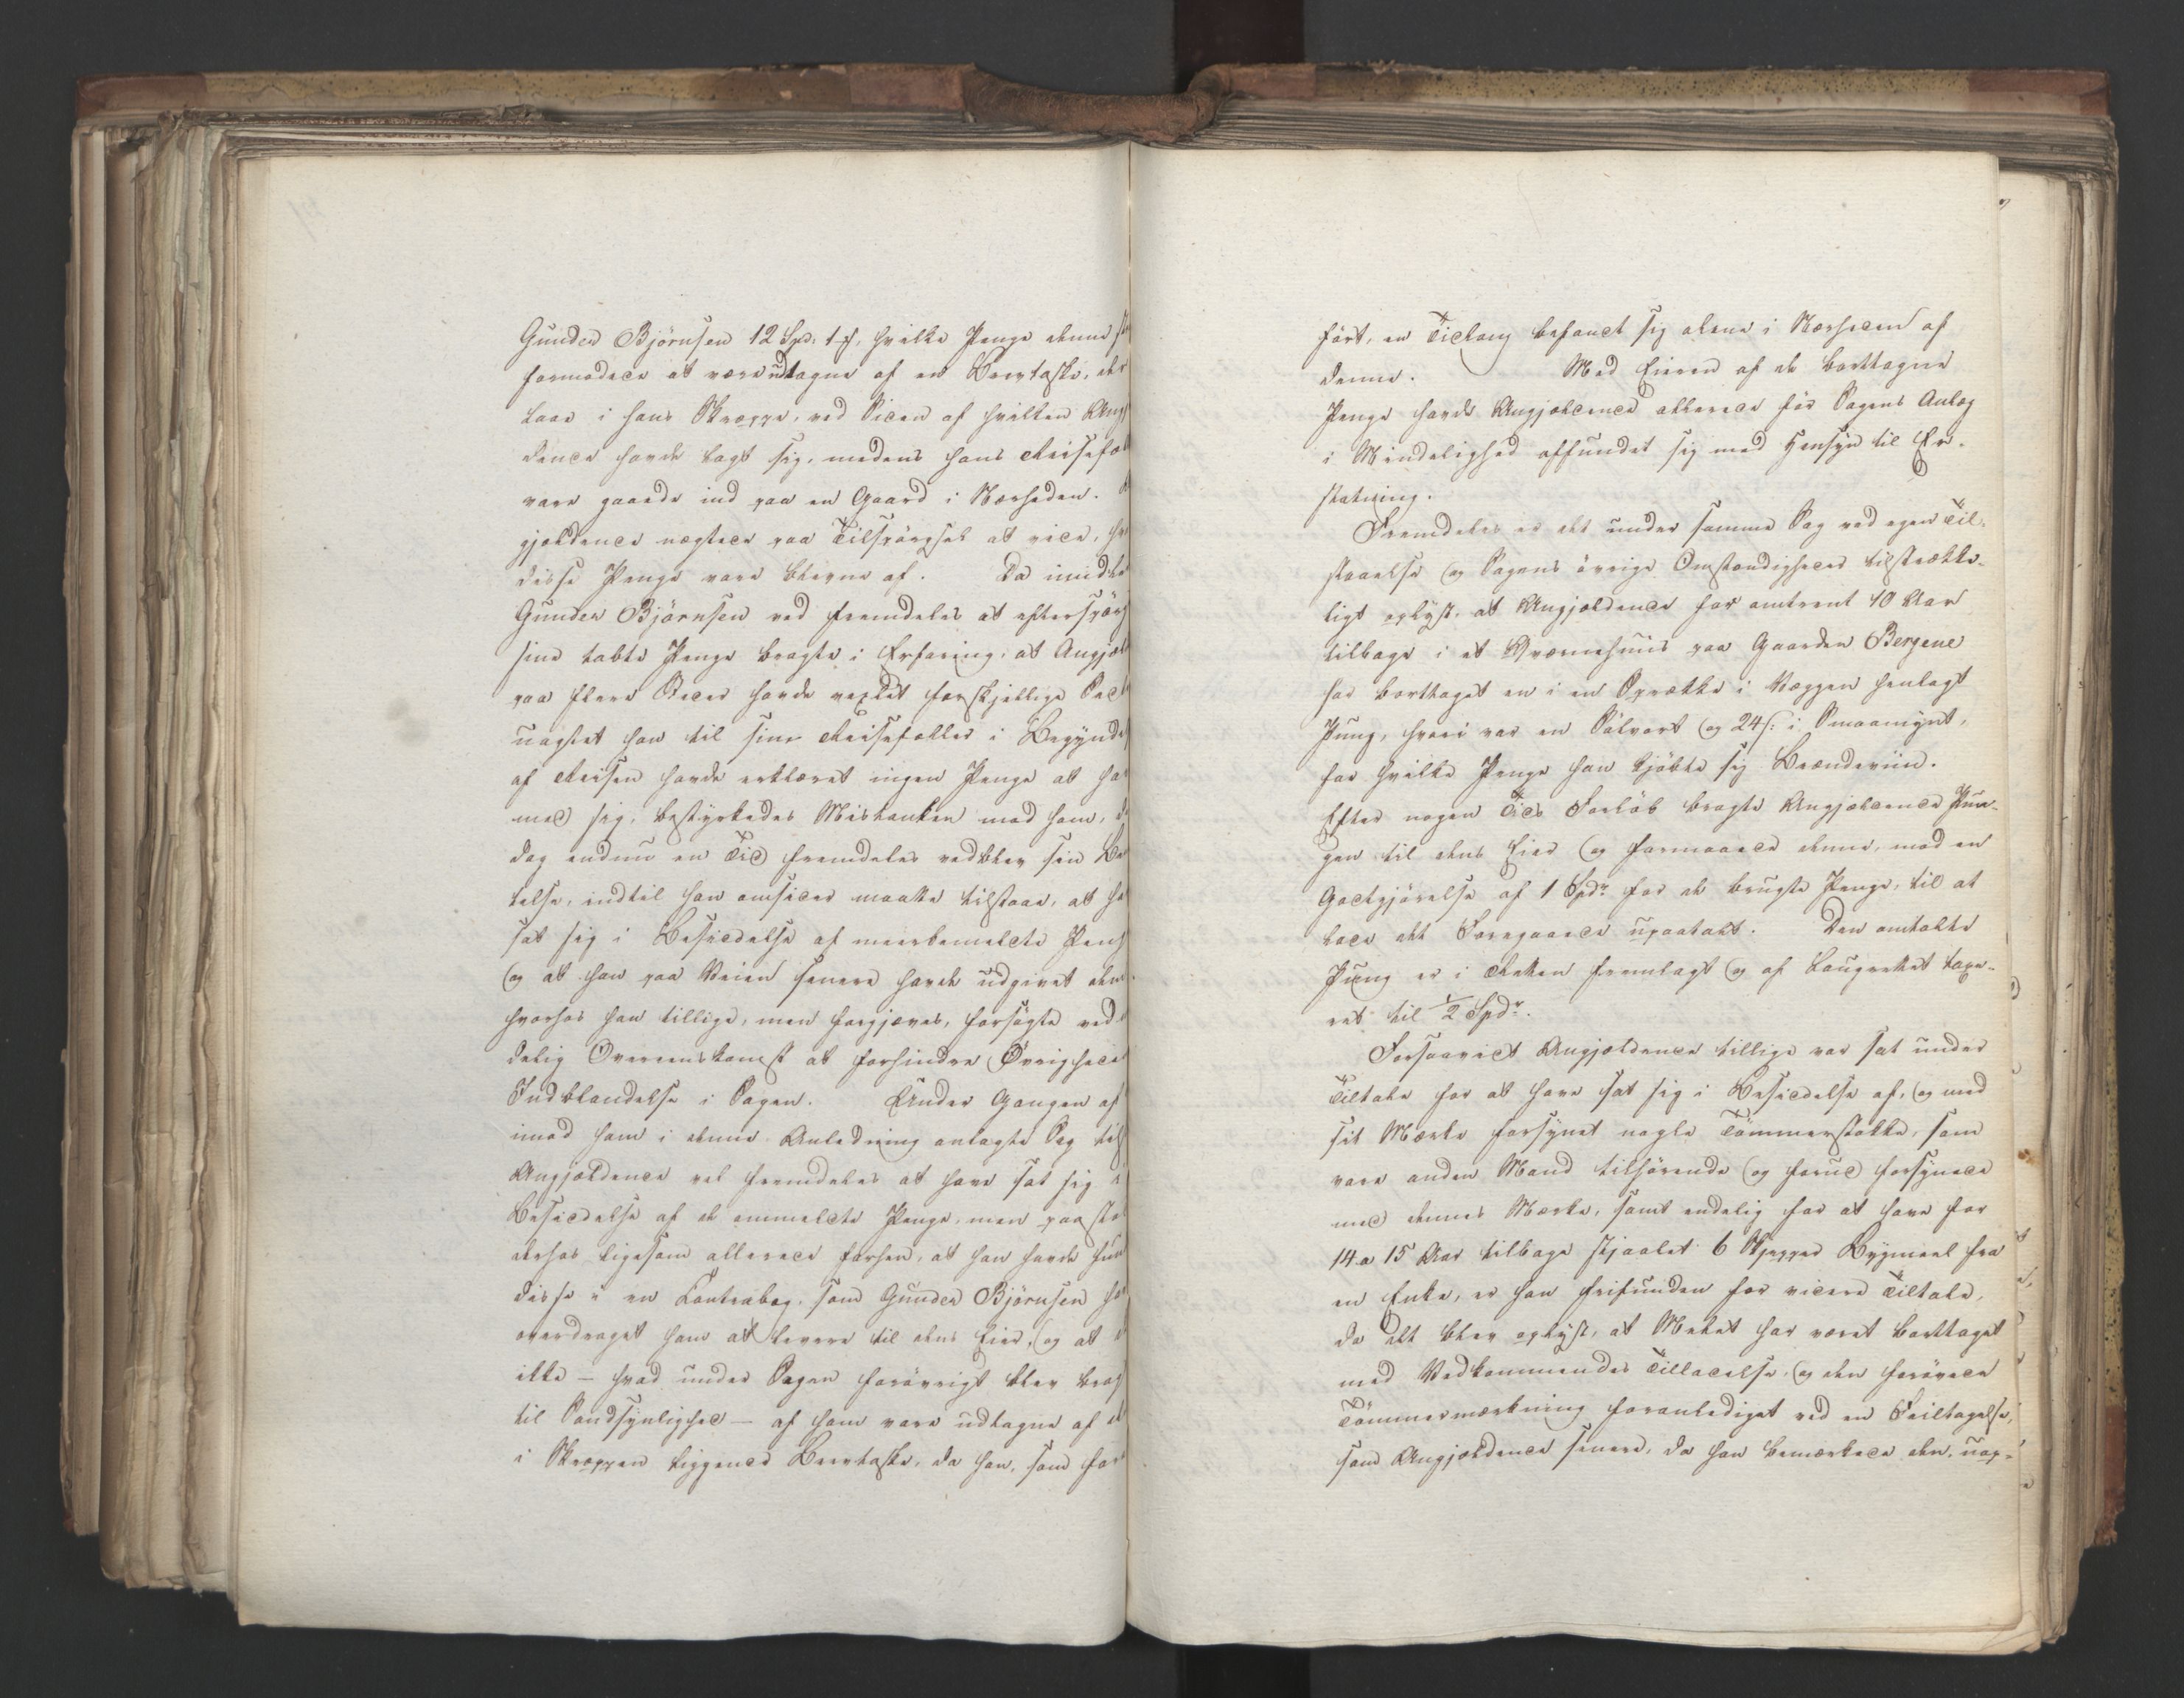 Gunder Björnsen 12 Spd. 1 ß, hvilke Penge denne
formodede at være udtagne af en Brevtaske, der
laae i hans Skreppe, ved Siden af hvilken Ang
dende havde lagt sig, medens hans Reisefæl
vare gaaede ind paa en Gaard i Nærheden.
gjældende nægtede paa Tilspørgsel at vide, hv
disse Penge vare blevne af. Da imidle
Gunder Björnsen ved fremdeles at efterspørg
sine tabte Penge bragte i Erfaring, at Angjæl
paa flere Steder havde vexlet forskjellige Sed
uagtet han til sine Reisefæller i Begyndel
af Reisen havde erklæret ingen Penge at ha
med sig, bestyrkedes Mistanken mod ham,
dog endnu en Tid fremdeles vedblev sin Be
telse, indtil han omsider maatte tilstaae, at ha
sat sig i Besiddelse af meerbemeldte Peng
og at han paa Veien senere havde udgivet dem
hvorhos han tillige, men forgjæves, forsøgte ved
delig Overeenskomst at forhindre Øvrighede
Indblandelse i Sagen. Under Gangen af
imod ham i denne Anledning anlagte Sag tils
Angjældende vel fremdeles at have sat sig i
Besiddelse af de ommeldte Penge, men paasto
derhos ligesom allerede forhen, at han havde fun
disse i en Contrabog, som Gunder Björnsen ha
overdraget ham at levere til dens Eier, og at
ikke – hvad under Sagen forøvrigt blev brag
til Sandsynlighed – af ham vare udtagne af d
i Skreppen liggende Brevtaske, da han, som for
ført, en Tidlang befandt sig alene i Nærheden af
denne. Med Eieren af de borttagne
Penge havde Angjældende allerede før Sagens Anlæg
i Mindelighed affundet sig med Hensyn til Er-
statning.
Fremdeles er det under samme Sag ved egen Til-
staaelse og Sagens øvrige Omstændigheder tilstrække-
ligt oplyst, at Angjældende for omtrent 10 Aar
tilbage i et Qværnehuus paa Gaarden Bergene
har borttaget en i en Sprække i Væggen henlagt
Pung, hvori var en Sølvort og 24 ß: i Smaamynt,
for hvilke Penge han kjøbte sig Brændeviin.
Efter nogen Tids Forløb bragte Angjældende Pun-
gen til dens Eier og formaaede denne, mod en
Godtgjørelse af 1 Spdr for de brugte Penge, til at
lade det Foregaaede upaatalt. Den omtalte
Pung er i Retten fremlagt og af Laugrettet taxe-
ret til 1/2 Spdr.
Forsaavidt Angjældende tillige var sat under
Tiltale for at have sat sig i Besiddelse af, og med
sit Mærke forsynet nogle Tømmerstokke, som
vare anden Mand tilhørende og forud forsynede
med dennes Mærke, samt endelig for at have for
14 a 15 Aar tilbage stjaalet 6 Skjepper Bygmeel fra
en Enke, er han frifunden for videre Tiltale,
da det blev oplyst, at Melet har været borttaget
med Vedkommendes Tilladelse, og den forøvede
Tømmermærkning foranlediget ved en Feiltagelse,
som Angjældende senere, da han bemærkede den, uop-